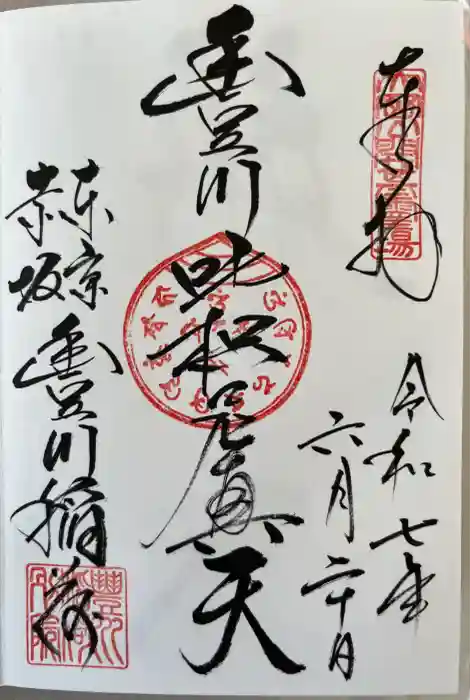 奉拝
令和七年
六月二十日
豊川吒枳尼眞天
東京
赤坂
豊川稲荷